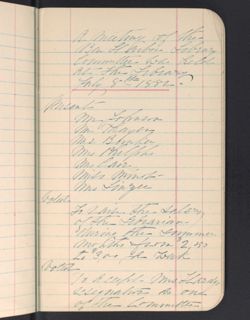 A meeting of the
Bar Harbor Library
Committee was held
at the Library
Feb 8th 1882.
Present
Mrs Johnson
Mrs Thayer
Mrs
Mrs
Mrs
Miss Minot
Mrs Singer
Voted
To raise the salary
of the librarian
during the Summer
months from 2.50
to 3.00 per week
Voted
To accept Mrs
resignation as one
of the Committee